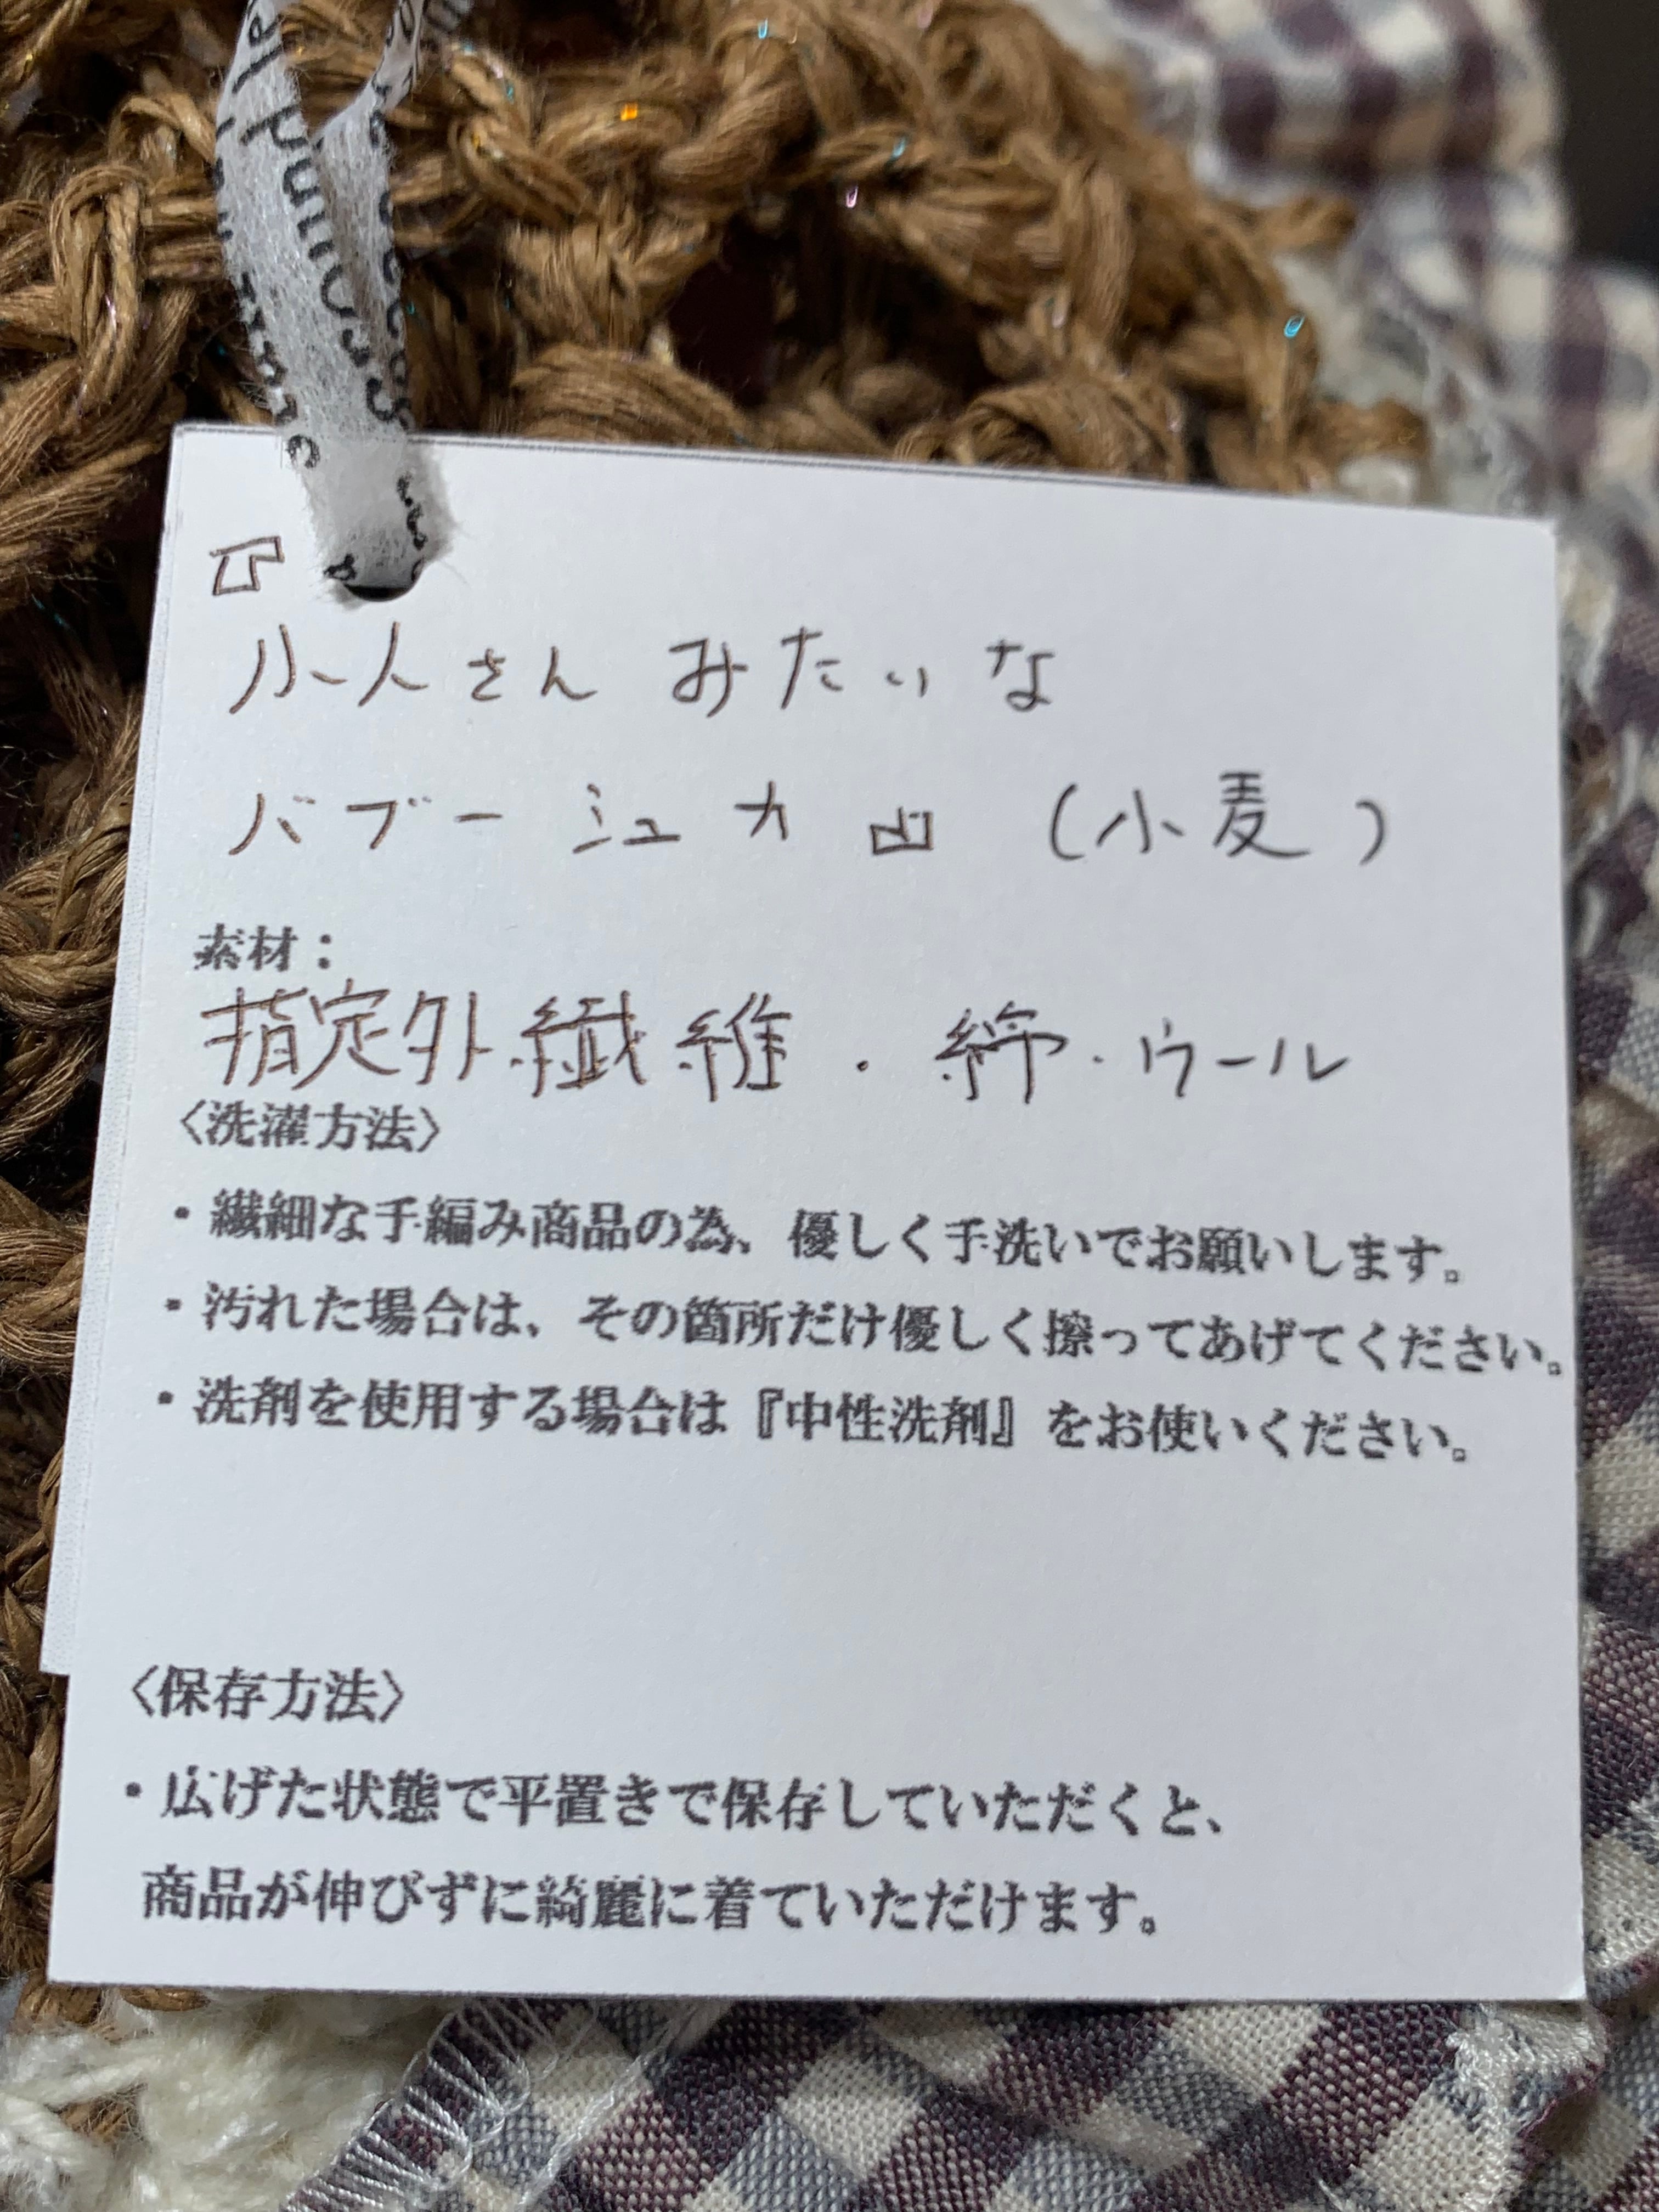 『
小人さん みたいな
バブーシュカ』(小麦)
素材：
指定外繊維・綿・ウール
〈洗濯方法〉
・繊細な手編み商品の為、優しく手洗いでお願いします。
・汚れた場合は、その箇所だけ優しく擦ってあげてください。
・洗剤を使用する場合は『中性洗剤』をお使いください。
〈保存方法〉
・広げた状態で平置きで保存していただくと、
商品が伸びずに綺麗に着ていただけます。